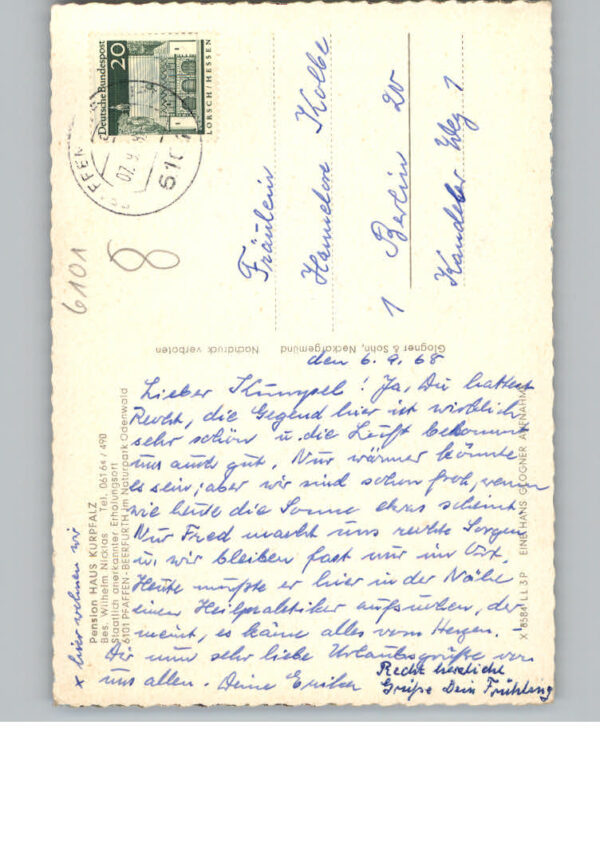 Deutsche Bundespost
20
LORSCH/HESSEN
07.9.
6101
6101
8
Fräulein
Hannelore Kolbe
1 Berlin 20
Kandeler Weg 1
Glogner & Sohn, Neckargemünd Nachdruck verboten
den 6.9.68
Lieber Kumpel! Ja, Du hattest
Recht, die Gegend hier ist wirklich
sehr schön u. die Luft bekommt
uns auch gut. Nur wärmer könnte
es sein; aber wir sind schon froh, wenn
wie heute die Sonne etwas scheint.
Nur Fred macht uns rechte Sorgen
u. wir bleiben fast nur im Ort.
Heute mußte er hier in der Nähe
einen Heilpraktiker aufsuchen, der
meint, es käme alles vom Herzen.
Dir nun sehr liebe Urlaubsgrüße von
uns allen. Deine Erika
Recht herzliche
Grüße Dein Frühling
x hier wohnen wir
Pension HAUS KURPFALZ
Bes. Wilhelm Nicklas Tel. 06164/490
Staatlich anerkannter Erholungsort
6101 PFAFFEN-BEERFURTH im Naturpark Odenwald
X 8584 LL 3 P EINE HANS GLOGNER AUFNAHME